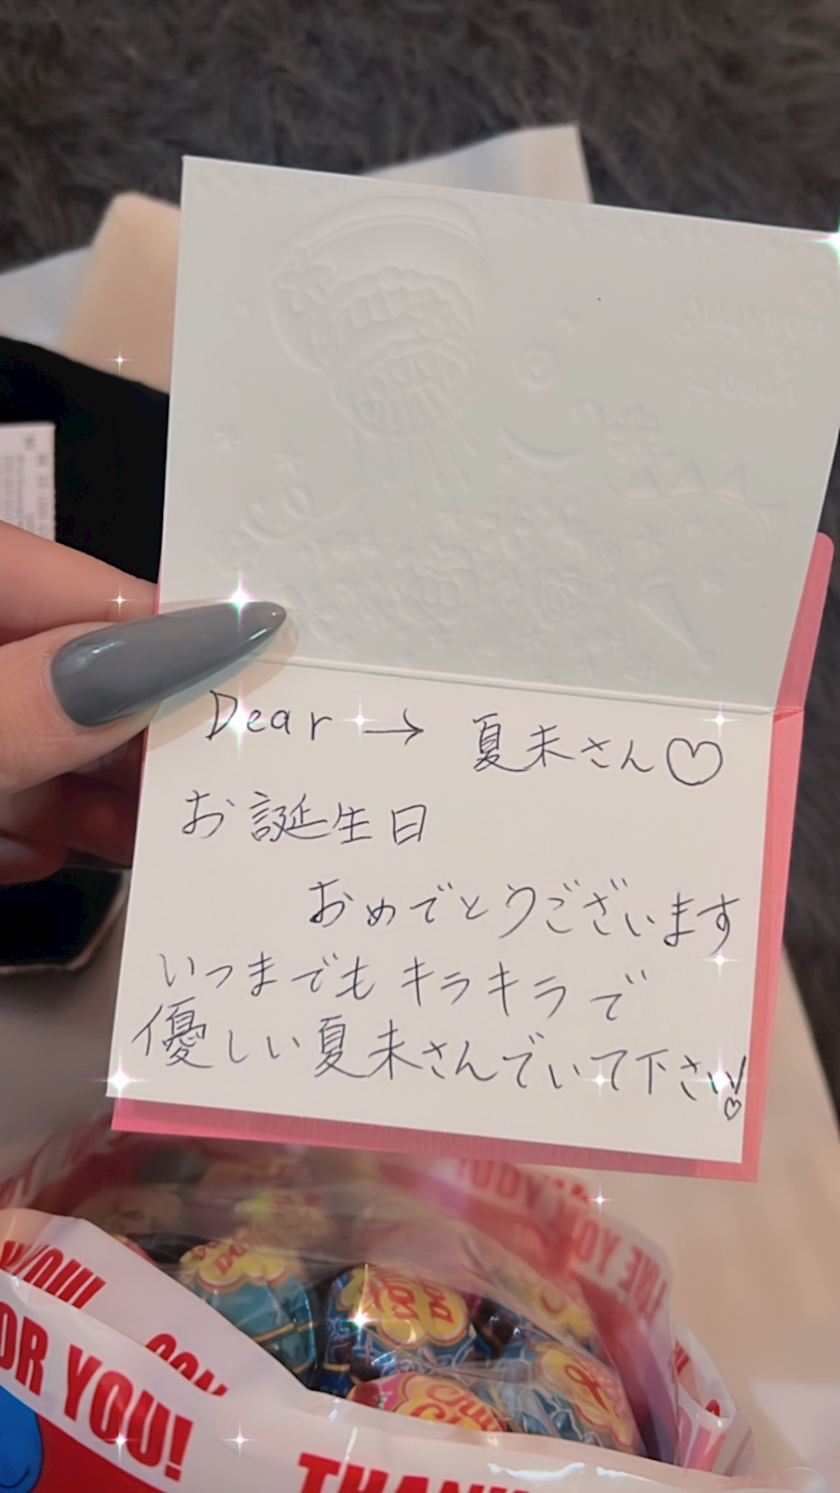 Dear → 夏未さん♡
お誕生日
おめでとうございます
いつまでもキラキラで
優しい夏未さんでいて下さい!♡
OR YOU!
THAN
Chu